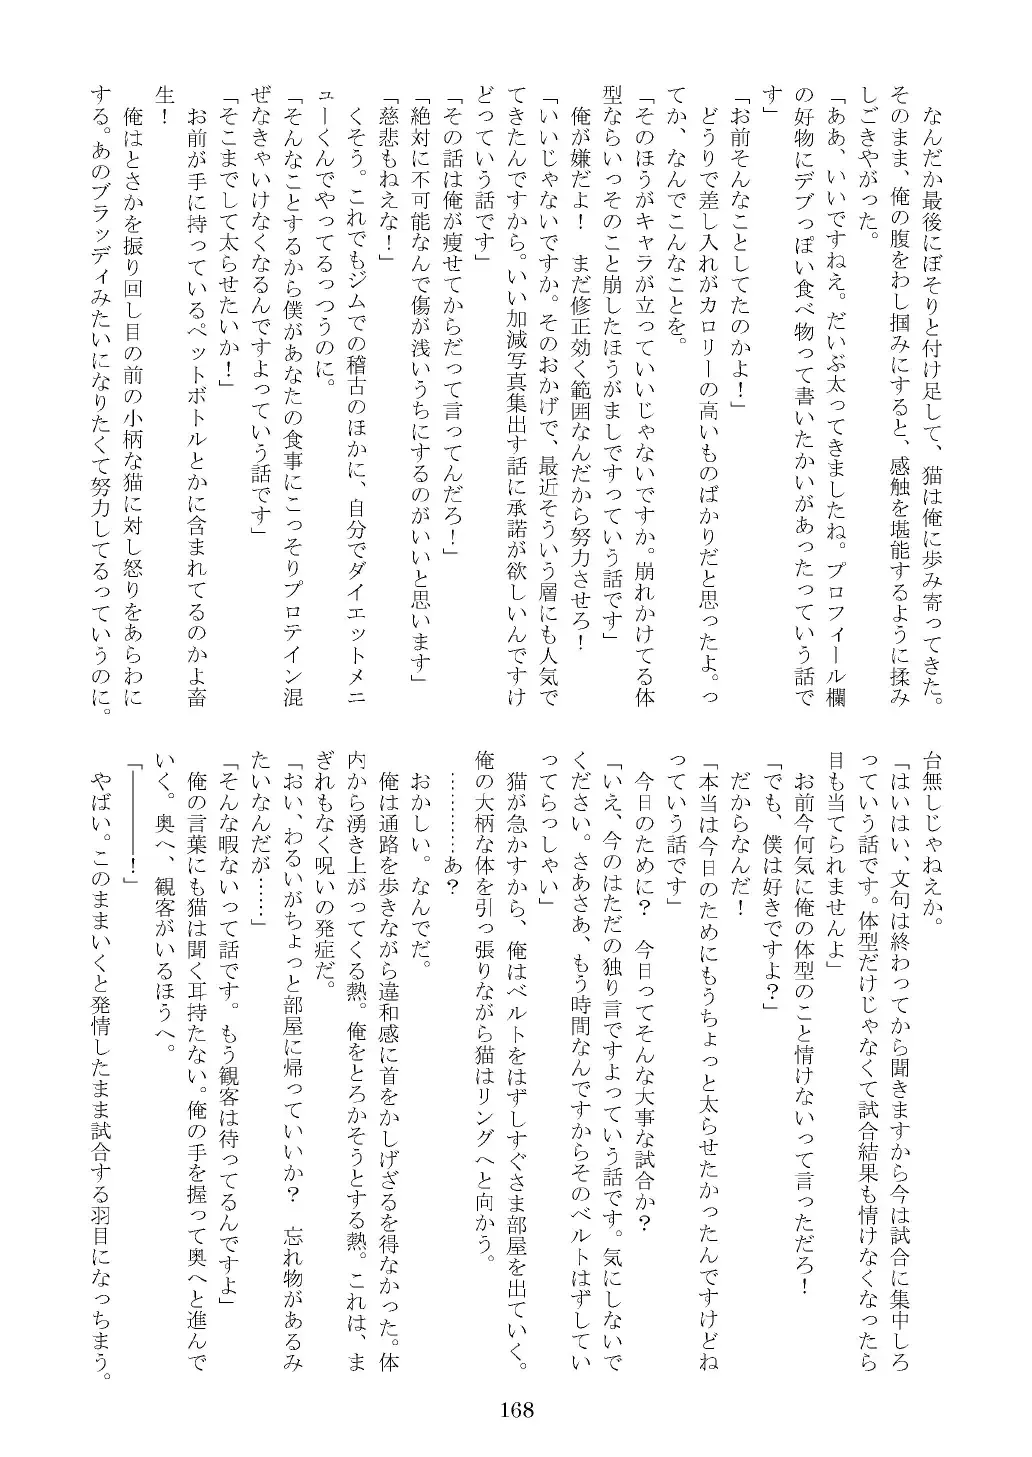 なんだか最後にぼそりと付け足して、猫は俺に歩み寄ってきた。
そのまま、俺の腹をわし掴みにすると、感触を堪能するように揉み
しごきやがった。
「ああ、いいですねえ。だいぶ太ってきましたね。プロフィール欄
の好物にデブっぽい食べ物って書いたかいがあったっていう話で
す」
「お前そんなことしてたのかよ！」
　どうりで差し入れがカロリーの高いものばかりだと思ったよ。っ
てか、なんでこんなことを。
「そのほうがキャラが立っていいじゃないですか。崩れかけてる体
型ならいっそのこと崩したほうがましですっていう話です」
　俺が嫌だよ！　まだ修正効く範囲なんだから努力させろ！
「いいじゃないですか。そのおかげで、最近そういう層にも人気で
てきたんですから。いい加減写真集出す話に承諾が欲しいんですけ
どっていう話です」
「その話は俺が痩せてからだって言ってんだろ！」
「絶対に不可能なんで傷が浅いうちにするのがいいと思います」
「慈悲もねえな！」
　くそう。これでもジムでの稽古のほかに、自分でダイエットメニ
ューくんでやってるっつうのに。
「そんなことするから僕があなたの食事にこっそりプロテイン混
ぜなきゃいけなくなるんですよっていう話です」
「そこまでして太らせたいか！」
　お前が手に持っているペットボトルとかに含まれてるのかよ畜
生！
　俺はとさかを振り回し目の前の小柄な猫に対し怒りをあらわに
する。あのブラッディみたいになりたくて努力してるっていうのに。
台無しじゃねえか。
「はいはい、文句は終わってから聞きますから今は試合に集中しろ
っていう話です。体型だけじゃなくて試合結果も情けなくなったら
目も当てられませんよ」
　お前今何気に俺の体型のこと情けないって言っただろ！
「でも、僕は好きですよ？」
　だからなんだ！
「本当は今日のためにもうちょっと太らせたかったんですけどね
っていう話です」
　今日のために？　今日ってそんな大事な試合か？
「いえ、今のはただの独り言ですよっていう話です。気にしないで
ください。さあさあ、もう時間なんですからそのベルトはずしてい
ってらっしゃい」
　猫が急かすから、俺はベルトをはずしすぐさま部屋を出ていく。
俺の大柄な体を引っ張りながら猫はリングへと向かう。
　…………あ？
　おかしい。なんでだ。
　俺は通路を歩きながら違和感に首をかしげざるを得なかった。体
内から湧き上がってくる熱。俺をとろかそうとする熱。これは、ま
ぎれもなく呪いの発症だ。
「おい、わるいがちょっと部屋に帰っていいか？　忘れ物があるみ
たいなんだが……」
「そんな暇ないって話です。もう観客は待ってるんですよ」
　俺の言葉にも猫は聞く耳持たない。俺の手を握って奥へと進んで
いく。奥へ、観客がいるほうへ。
「――――！」
　やばい。このままいくと発情したまま試合する羽目になっちまう。
168